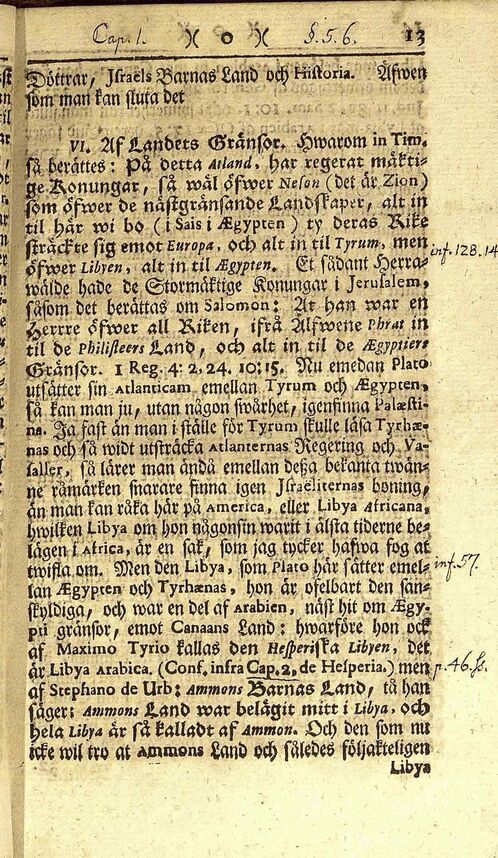 Cap. 1. )( o )( §. 5. 6. 13
Döttrar, Israels Barnas Land och Historia. Äfwen
som man kan sluta det
VI. Af Landets Gränsor. Hwarom in Tim.
så berättes: På detta Atland, har regerat mäkti-
ge Konungar, så wäl öfwer Neson (det är Zion)
som öfwer de nästgränsande Landskaper, alt in
til här wi bo (i Sais i Ægypten) ty deras Rike
sträckte sig emot Europa, och alt in til Tyrum, men
öfwer Libyen, alt in til Ægypten. Et sådant Herra-
wälde hade de Stormäktige Konungar i Jerusalem,
såsom det berättas om Salomon: At han war en
Herrre öfwer all Riken, ifrå Älfwene Phrat in
til de Philisteers Land, och alt in til de Ægyptiers
Gränsor. 1 Reg. 4: 2, 24. 10:15. Nu emedan Plato
utsätter sin Atlanticam emellan Tyrum och Ægypten,
så kan man ju, utan någon swårhet, igenfinna Palæsti-
na. Ja fast än man i ställe för Tyrum skulle läsa Tyrhæ-
nas och så widt utsträcka Atlanternas Regering och Va-
saller, så lärer man ändå emellan deßa bekanta twän-
ne råmärken snarare finna igen Israeliternas boning,
än man kan råka här på America, eller Libya Africana,
hwilken Libya om hon någonsin warit i älsta tiderne be-
lägen i Africa, är en sak, som jag tycker hafwa fog at
twifla om. Men den Libya, som Plato här sätter emel-
lan Ægypten och Tyrhænas, hon är ofelbart den san-
skyldiga, och war en del af Arabien, näst hit om Ægy-
pti gränsor, emot Canaans Land: hwarföre hon ock
af Maximo Tyrio kallas den Hesperiska Libyen, det
är Libya Arabica. (Conf. infra Cap. 2, de Hesperia.) men
af Stephano de Urb: Ammons Barnas Land, tå han
säger: Ammons Land war belägit mitt i Libya, och
hela Libya är så kalladt af Ammon. Och den som nu
icke wil tro at Ammons Land och således följakteligen
Libya
inf. 128. 14
inf. 57.
p. 46. ss.